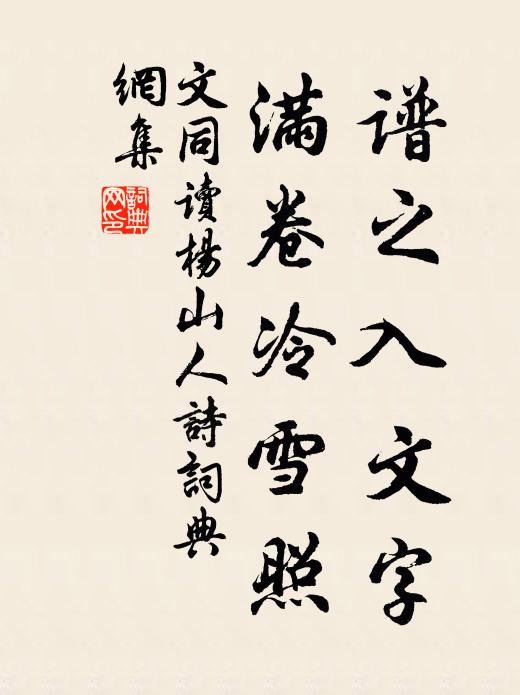 谱之入文字
满卷冷雪照
文同讀楊山人詩詞典
網集
詞典网印